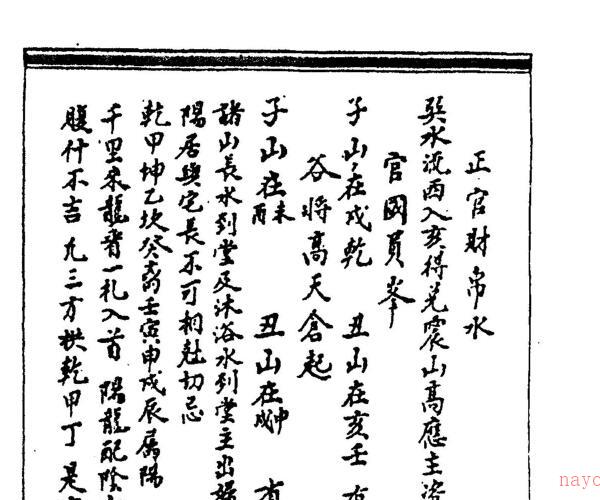 正官財帛水
巽水流酉入亥得兌震山高應主
官國員峯
子山在戌乾 丑山在亥壬
谷將高天倉起
子山在未酉 丑山在申戌
諸山長水到堂及沐浴水到堂主出
陽居與宅長不可相尅切忌
乾甲坤乙坎癸 壬寅申戌辰屬陽
千里來龍看一札入首 陽龍配陰
腹什不吉 九三方拱乾甲丁 是
nayo